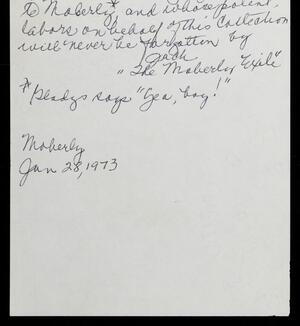 to Moberly* and whose potent
labors on behalf of this Collection
will never be forgotten by
Jack
"The Moberly Exile"
*Gladys says "Yea, boy!"
Moberly
Jan 28, 1973